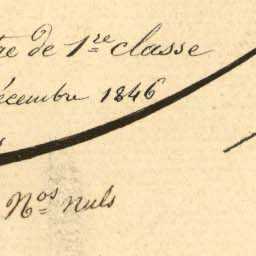 tre de 1re classe
écembre 1846
Nos nuls